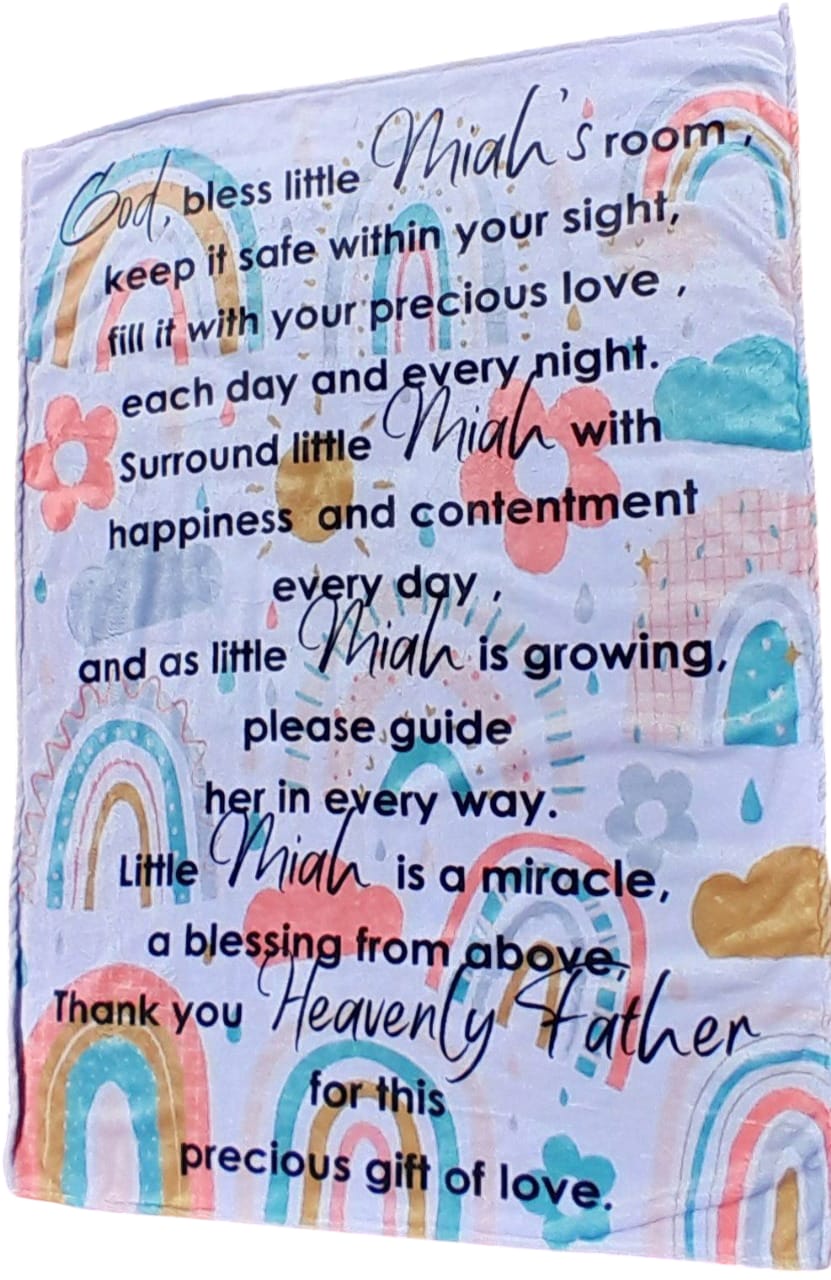 God, bless little Miah's room ,
keep it safe within your sight,
fill it with your precious love ,
each day and every night.
Surround little Miah with
happiness and contentment
every day ,
and as little Miah is growing,
please guide
her in every way.
Little Miah is a miracle,
a blessing from above,
Thank you Heavenly Father
for this
precious gift of love.